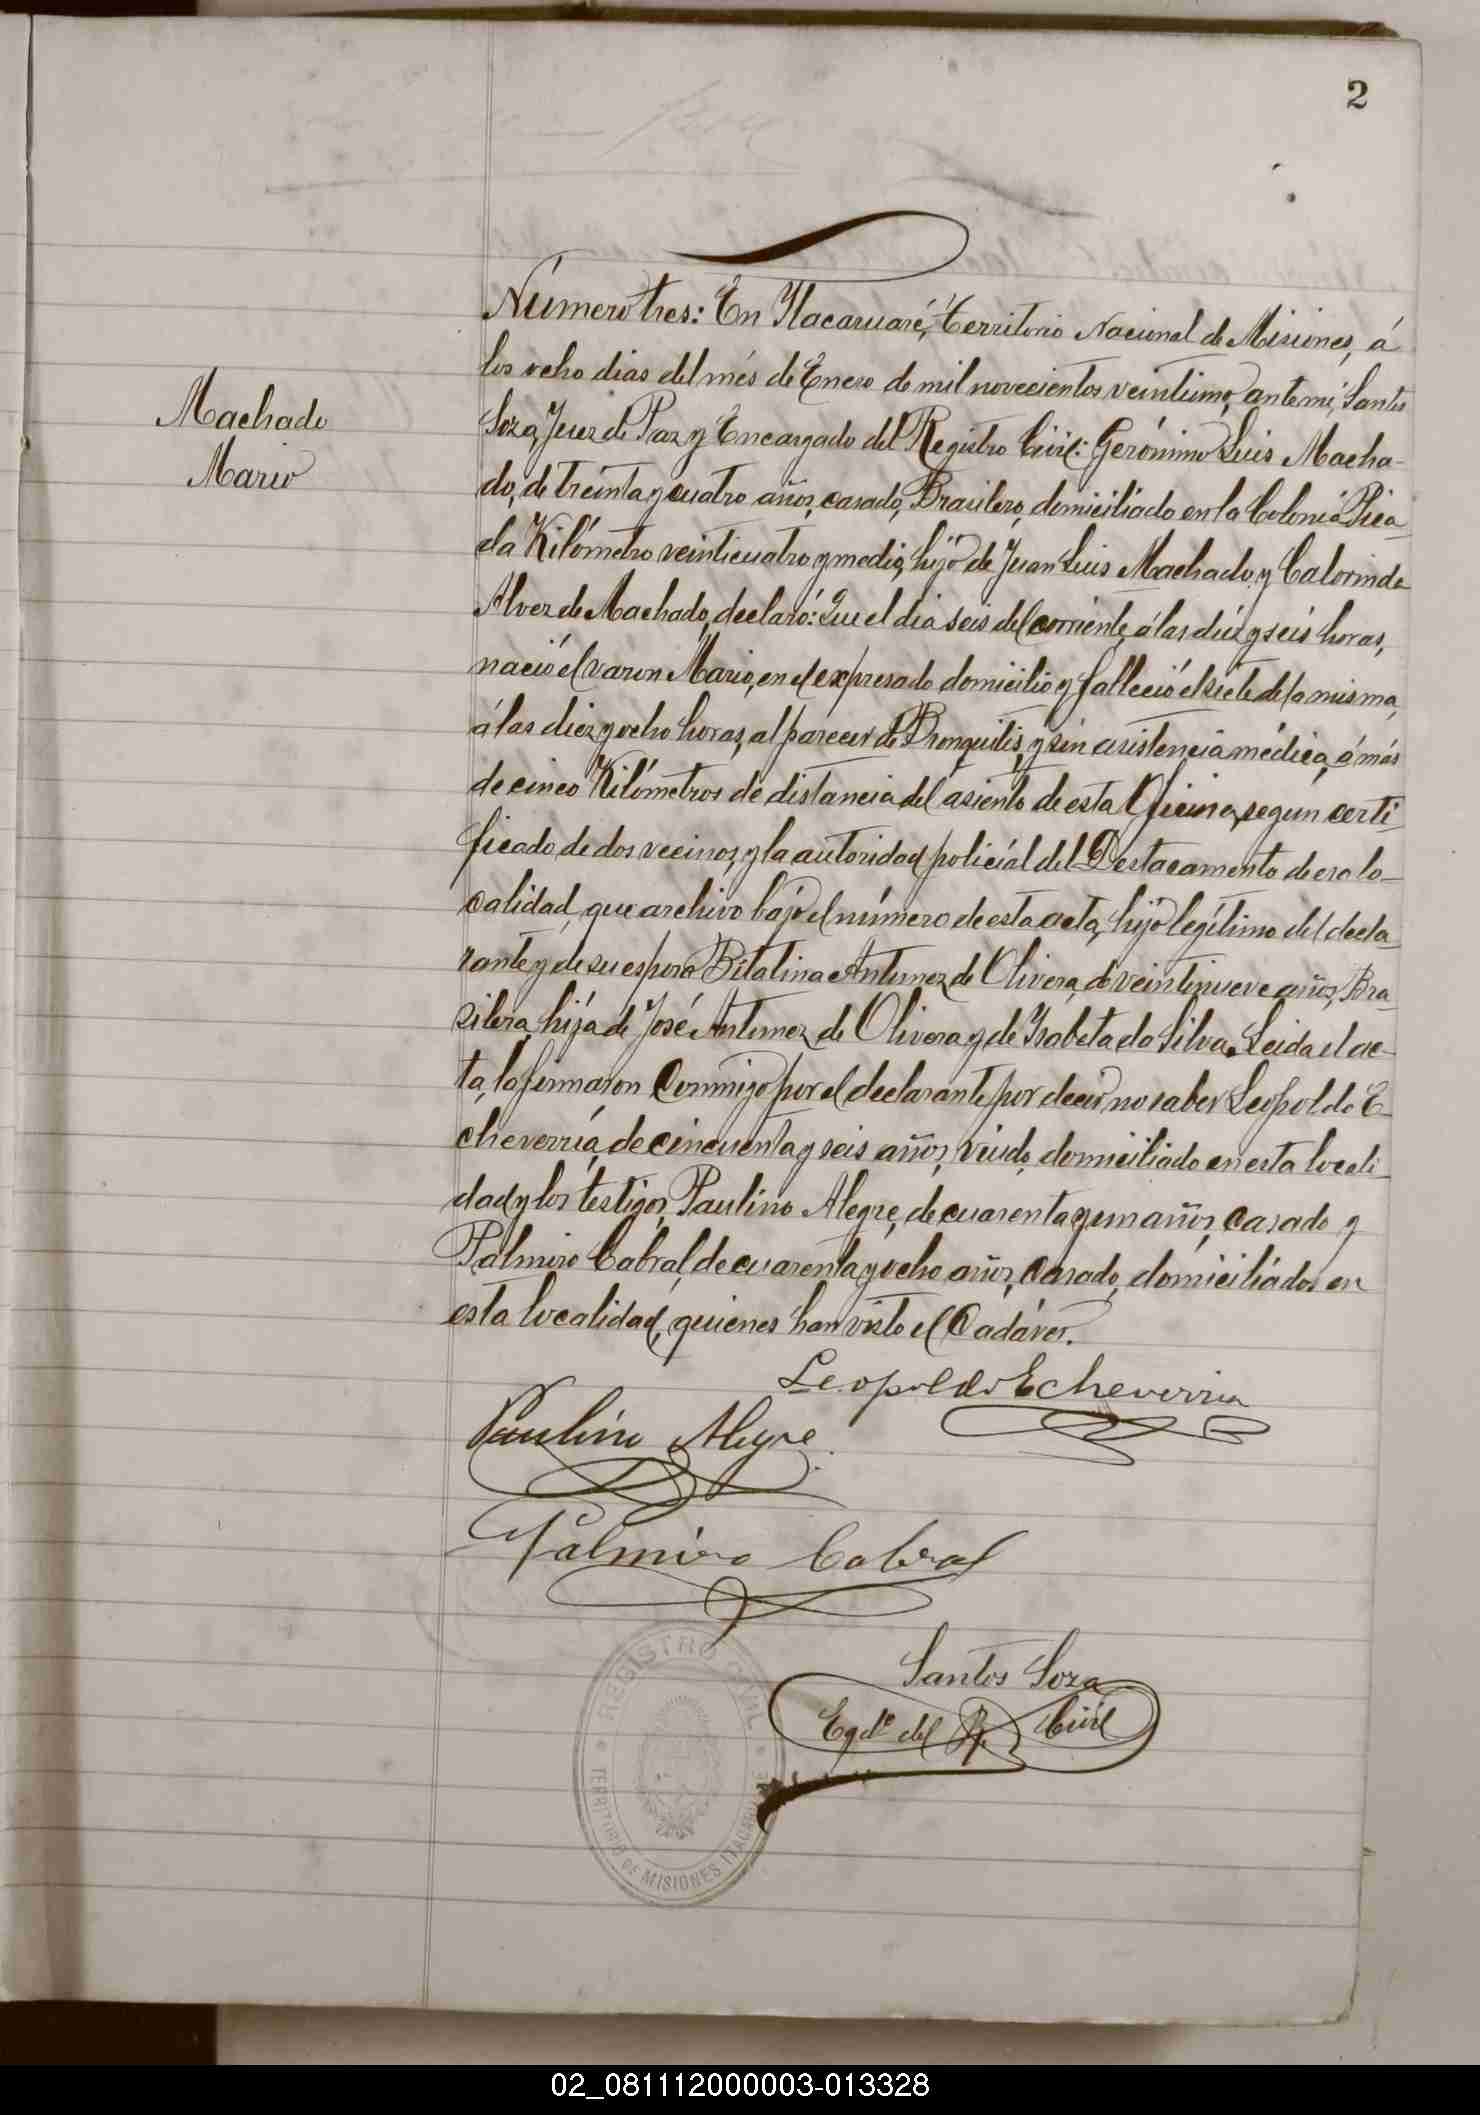 2
Machado
Mario
Número tres: En Itacaruaré, Territorio Nacional de Misiones, á
los ocho dias del més de Enero de mil novecientos veintiuno, ante mi, Santos
Soza, Juez de Paz y Encargado del Registro Civil: Gerónimo Luis Macha-
do, de treinta y cuatro años, casado, Brasilero, domiciliado en la Colonia Pica-
da Kilómetro veinticuatro y medio, hijo de Juan Luis Machado y Calorinda
Alvez de Machado, declaró: Que el dia seis del corriente, á las diéz y seis horas,
nació el varon Mario, en el expresado domicilio y falleció el siete de la misma,
á las diez y ocho horas, al parecer de Bronquitis, y sin asistencia médica, á más
de cinco Kilómetros de distancia del asiento de esta Oficina, segun certi-
ficado de dos vecinos, y la autoridad policial del Destacamento de esa lo-
calidad, que archivo bajo el número de esta acta, hijo legítimo del decla-
rante y de su esposa Bitalina Antunez de Olivera, de veintinueve años, Bra-
silera, hija de José Antunez de Olivera y de Isabeta da Silva. Leida el ac-
ta, la firmaron conmigo por el declarante por decir no saber Leopoldo E-
cheverría, de cincuenta y seis años, viudo, domiciliado en esta locali-
dad y los testigos, Paulino Alegre, de cuarenta y un años, casado y
Palmiro Cabral, de cuarenta y ocho años, casado, domiciliados en
esta localidad, quienes han visto el Cadáver.
Leopoldo Echeverria
Paulino Alegre
Palmiro Cabral
Santos Soza
Egdo del R. Civil
REGISTRO CIVIL
TERRITORIO DE MISIONES ITACARUARE
02_081112000003-013328